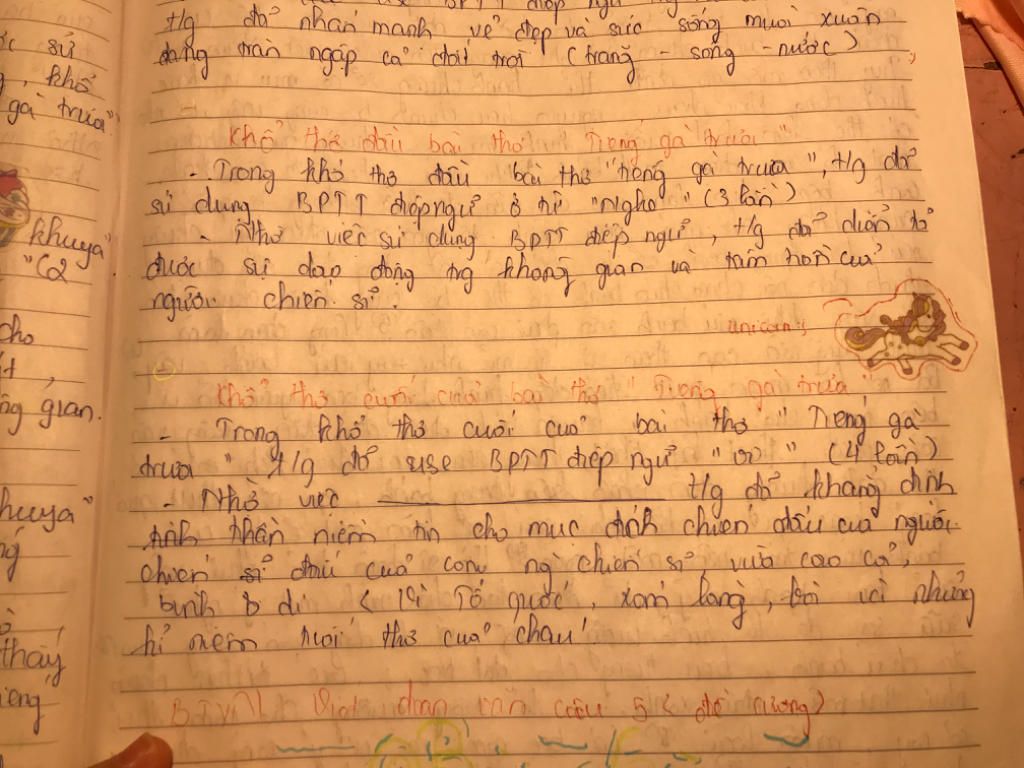 BPTT điệp ngữ
t/g đã nhấn mạnh vẻ đẹp và sức sống mùa xuân
đang tràn ngập cả đất trời (trăng - sông - nước)
Khổ thơ đầu bài thơ "Tiếng gà trưa"
- Trong khổ thơ đầu bài thơ "Tiếng gà trưa", t/g đã
sử dụng BPTT điệp ngữ ở từ "Nghe" (3 lần)
- Nhờ việc sử dụng BPTT điệp ngữ, t/g đã diễn tả
được sự dao động trg không gian và tâm hồn của
người chiến sĩ.
unicorn
Khổ thơ cuối của bài thơ "Tiếng gà trưa"
- Trong khổ thơ cuối của bài thơ "Tiếng gà
trưa" t/g đã use BPTT điệp ngữ "vì" (4 lần)
- Nhờ việc t/g đã khẳng định
niềm tin cho mục đích chiến đấu của người
chiến sĩ đấu của con ng chiến sĩ vừa cao cả,
bình dị < Vì Tổ quốc, xóm làng, bà vì những
kỉ niệm tuổi thơ của cháu
BTVN Viết đoạn văn câu 5 < đề cương)
sử
, khổ
gà trưa"
khuya"
"(2
cho
ng gian.
khuya"
thấy
iếng